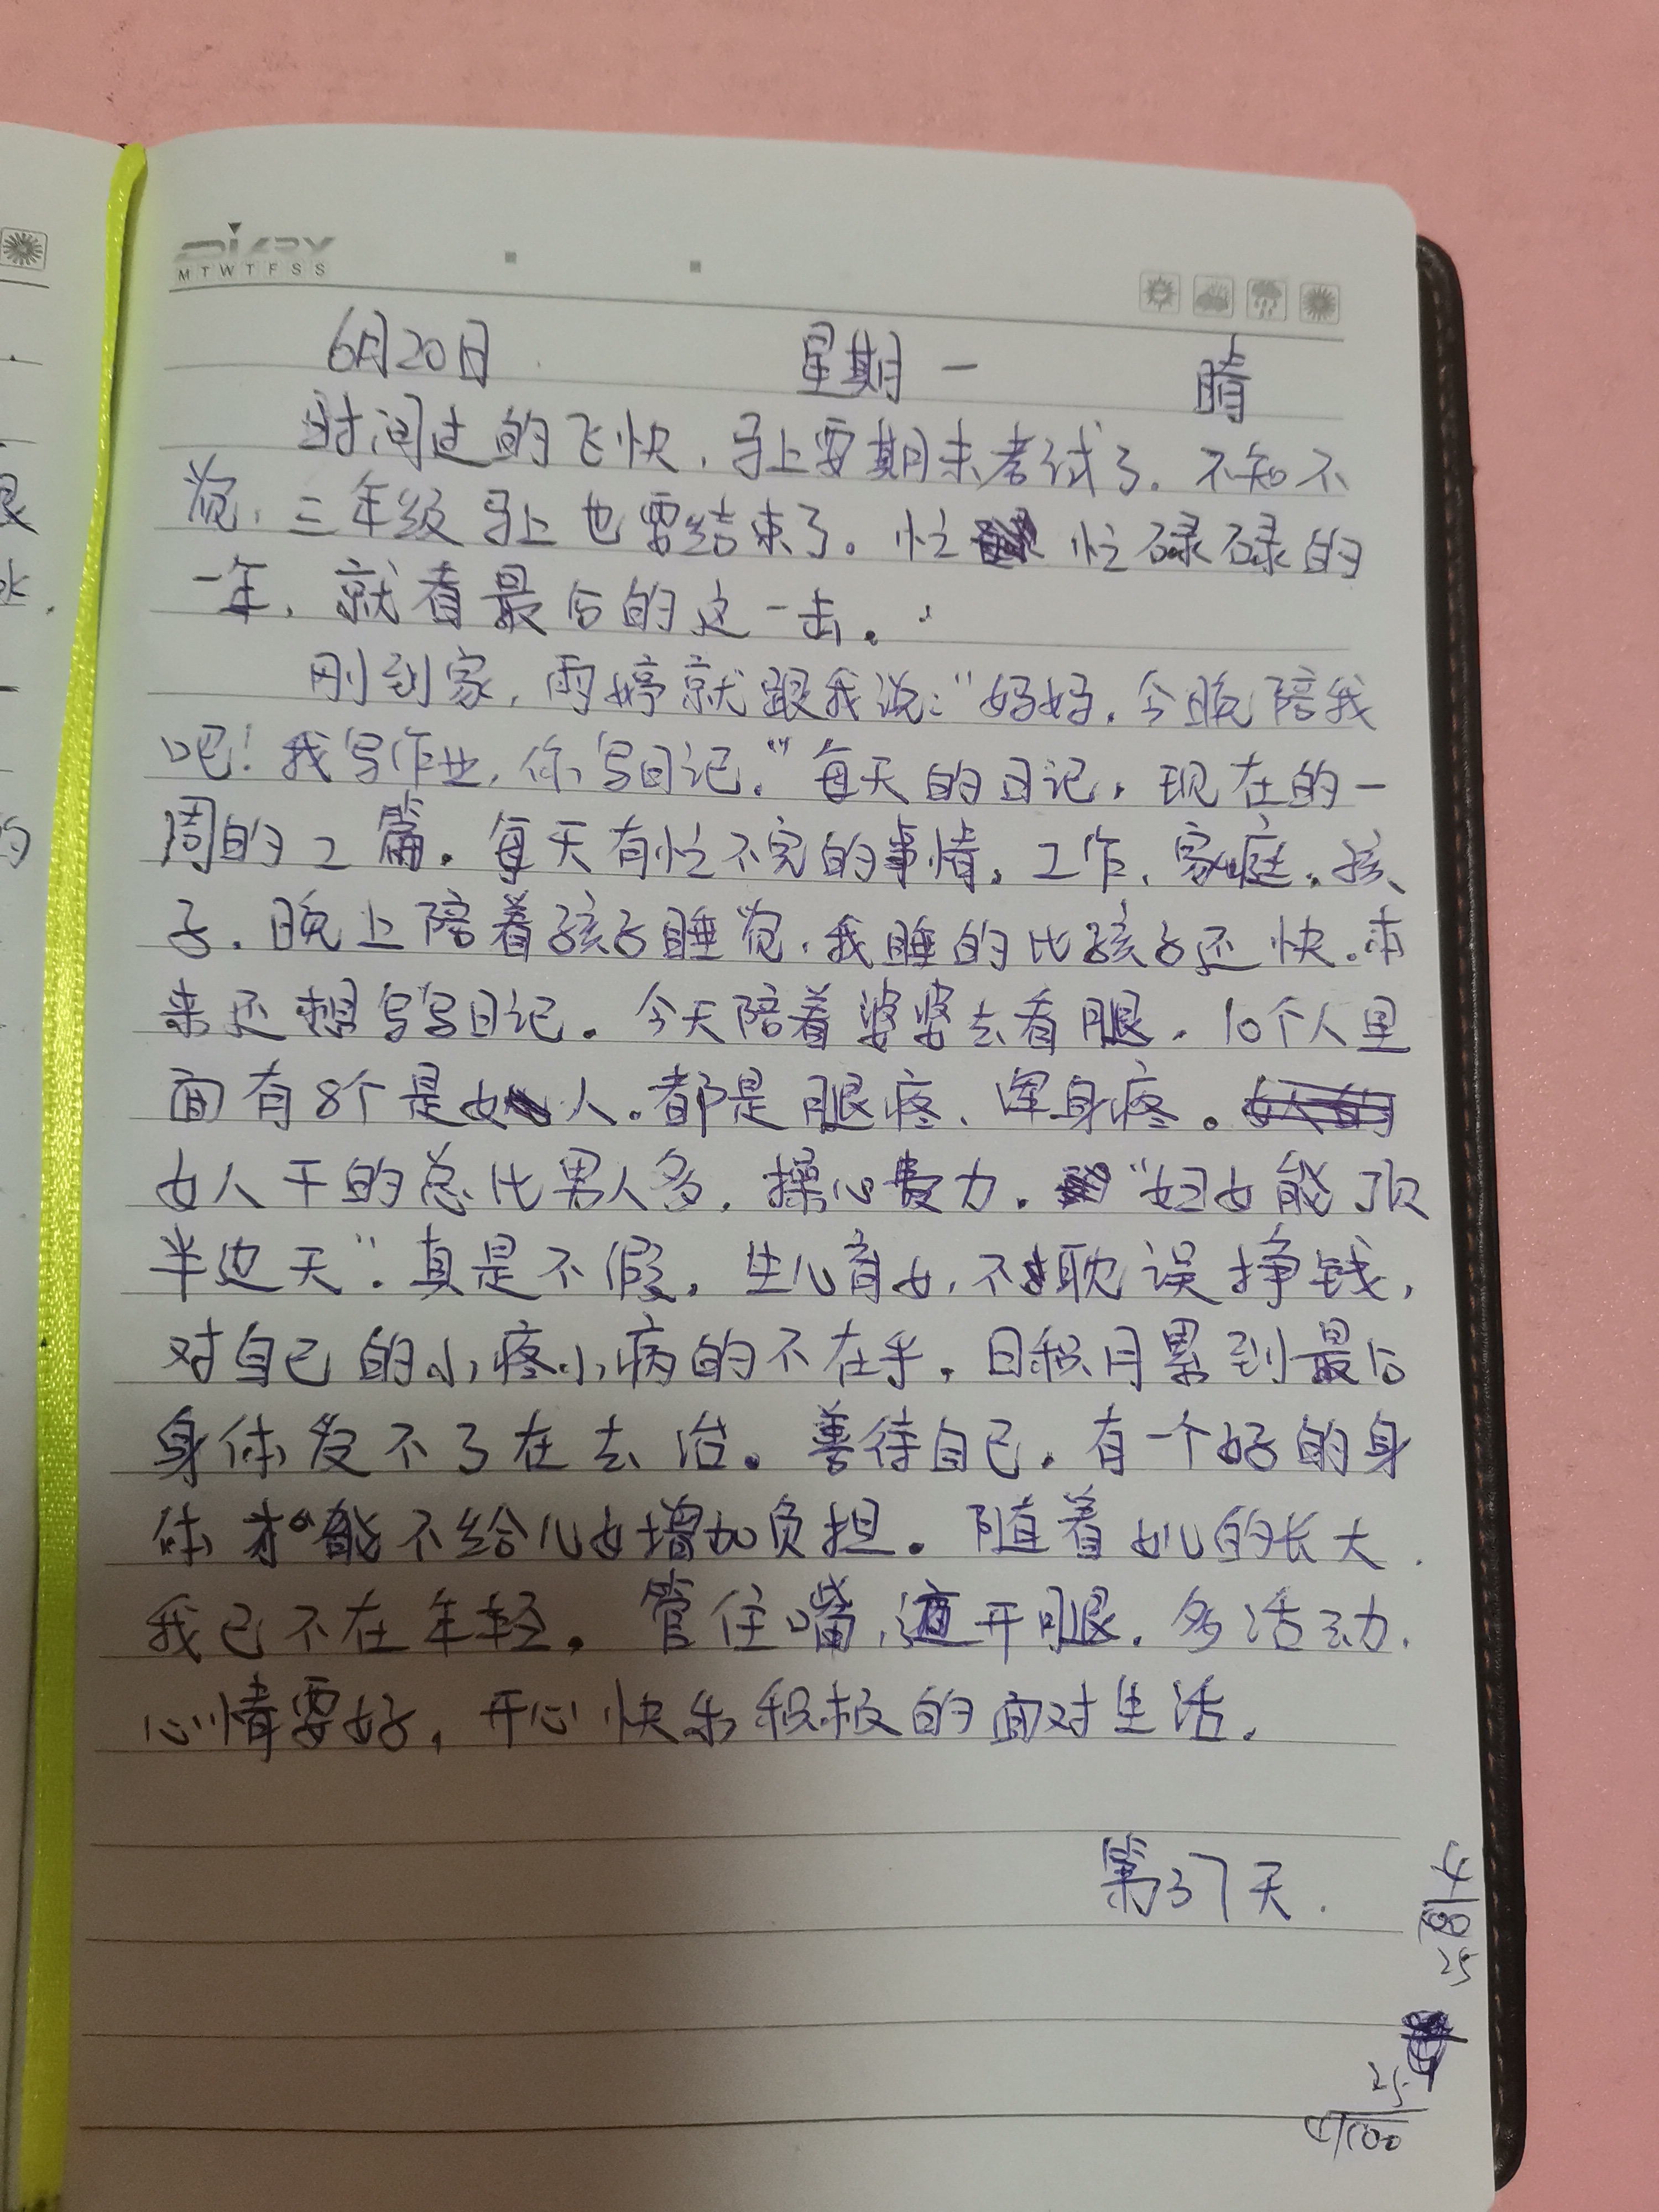 DIARY
M T W T F S S
6月20日 星期一 晴
时间过的飞快，马上要期末考试了。不知不
觉，三年级马上也要结束了。忙忙碌碌的
一年，就看最后的这一击。
刚到家，雨婷就跟我说："妈妈，今晚陪我
吧！我写作业，你写日记。"每天的日记，现在的一
周的2篇。每天有忙不完的事情。工作、家庭、孩
子。晚上陪着孩子睡觉，我睡的比孩子还快。本
来还想写写日记。今天陪着婆婆去看腿，10个人里
面有8个是女人。都是腿疼、浑身疼。
女人干的总比男人多，操心费力。"妇女能顶
半边天"。真是不假，生儿育女，不耽误挣钱，
对自己的小疼小病的不在乎，日积月累到最后
身体受不了在去治。善待自己，有一个好的身
体才能不给儿女增加负担。随着女儿的长大，
我已不在年轻。管住嘴，迈开腿，多活动，
心情要好，开心快乐积极的面对生活。
第37天.
4
25
25
100